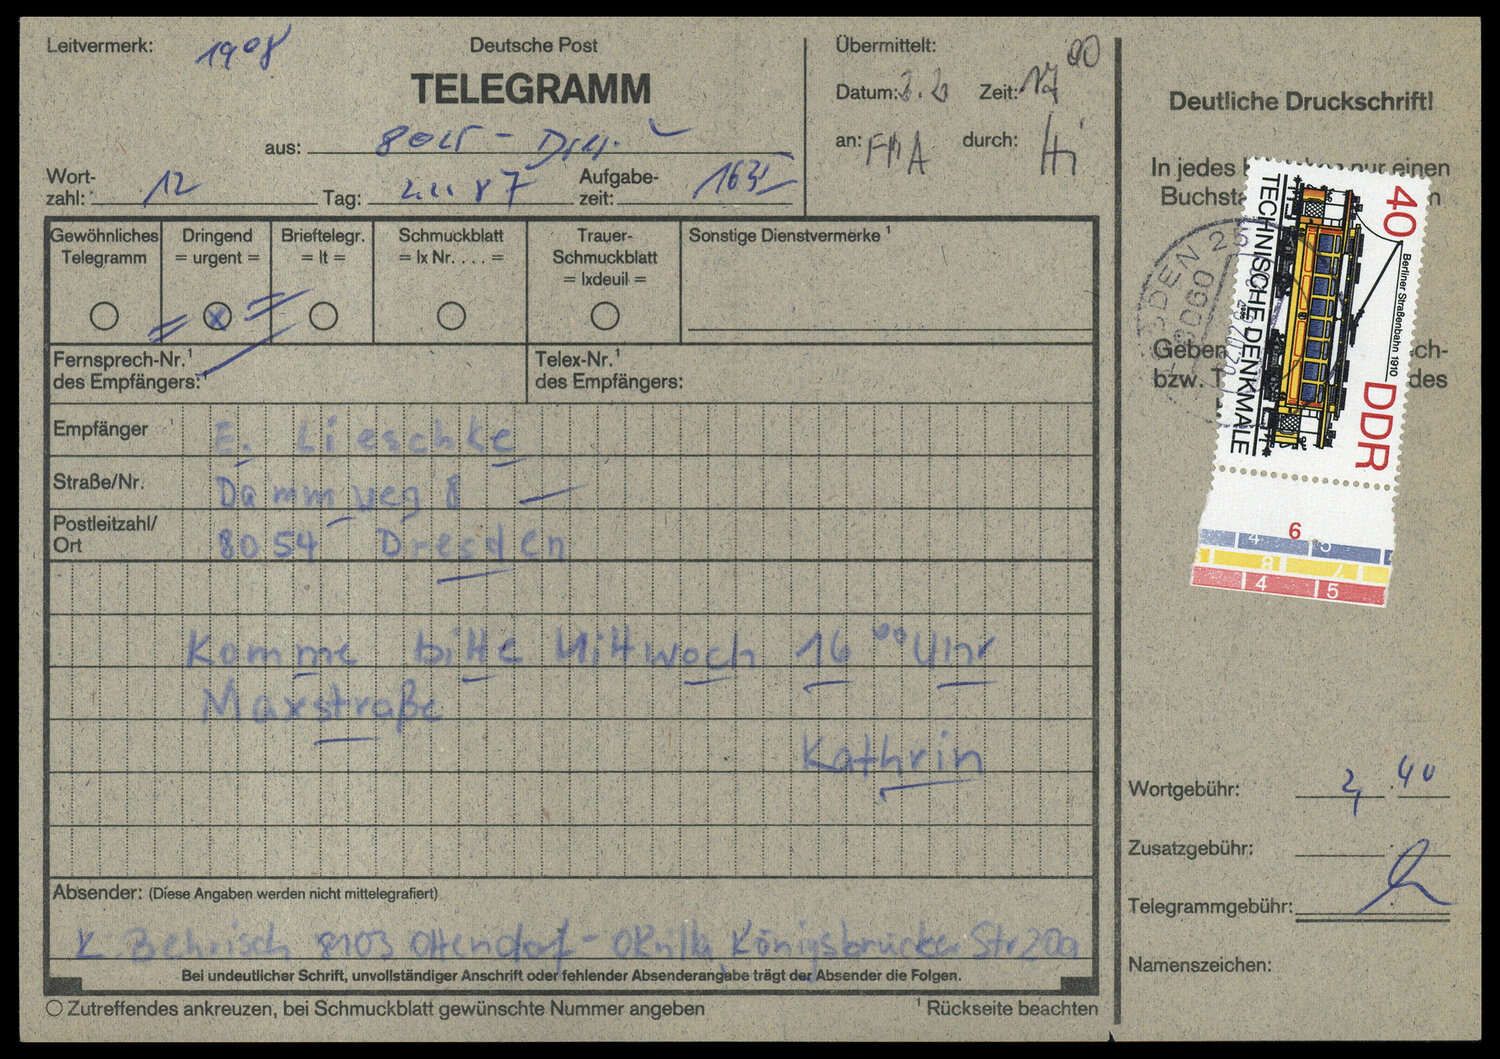 Leitvermerk: 1908
Deutsche Post
TELEGRAMM
aus:
Wort-
zahl: 12
Tag: 87
Aufgabe-
zeit:
Übermittelt:
Datum: Zeit: 17 00
an: durch: Hi
Deutliche Druckschrift!
In jedes nur einen
Buchsta
Gewöhnliches
Telegramm
Dringend
= urgent =
Brieftelegr.
= lt =
Schmuckblatt
= lx Nr. . . . =
Trauer-
Schmuckblatt
= lxdeuil =
Sonstige Dienstvermerke ¹
Fernsprech-Nr.¹
des Empfängers:
Telex-Nr.¹
des Empfängers:
Geben ch-
bzw. T des
Empfänger E. Lieschke
Straße/Nr. Dammweg 8
Postleitzahl/
Ort 8054 Dresden
Komme bitte Mittwoch 16 00 Uhr
Maxstraße
Kathrin
Absender: (Diese Angaben werden nicht mittelegrafiert)
K. Behrisch 8103 Ottendorf-Okrilla, Königsbrücker Str 20a
Bei undeutlicher Schrift, unvollständiger Anschrift oder fehlender Absenderangabe trägt der Absender die Folgen.
Zutreffendes ankreuzen, bei Schmuckblatt gewünschte Nummer angeben
¹ Rückseite beachten
40
Berliner Straßenbahn 1910
DDR
TECHNISCHE DENKMALE
SDEN 25
8060
6
4 5
8 7
4 5
Wortgebühr: 2, 40
Zusatzgebühr:
Telegrammgebühr:
Namenszeichen: